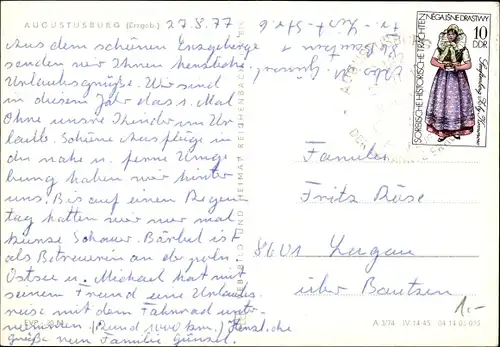 AUGUSTUSBURG (Erzgeb.) 27.8.77
Aus dem schönen Erzgebirge
senden wir Ihnen herzliche
Urlaubsgrüße. Wir sind
in diesem Jahr das 1. Mal
ohne unsre Kinder im Ur-
laub. Schöne Ausflüge in
die nahe u. ferne Umge
bung haben wir hinter
uns. Bis auf einen Regen
tag hatten wir nur mal
kurze Schauer. Bärbel ist
als Betreuerin an der poln.
Ostsee u. Michael hat mit
seinem Freund eine Urlaubs
reise mit dem Fahrrad unter-
nommen (Rund 1000 km.) Herzliche
Grüße von Familie Günzel.
Abs. Günzel
86 Bautzen
BILD UND HEIMAT REICHENBACH
SORBISCHE HISTORISCHE TRACHTEN
NĚGAJŠNE DRASTWY
10
DDR
Familie
Fritz Röse
8601 Lugau
über Bautzen
1.-
A 3/74 IV-14-45 04 14 05 035